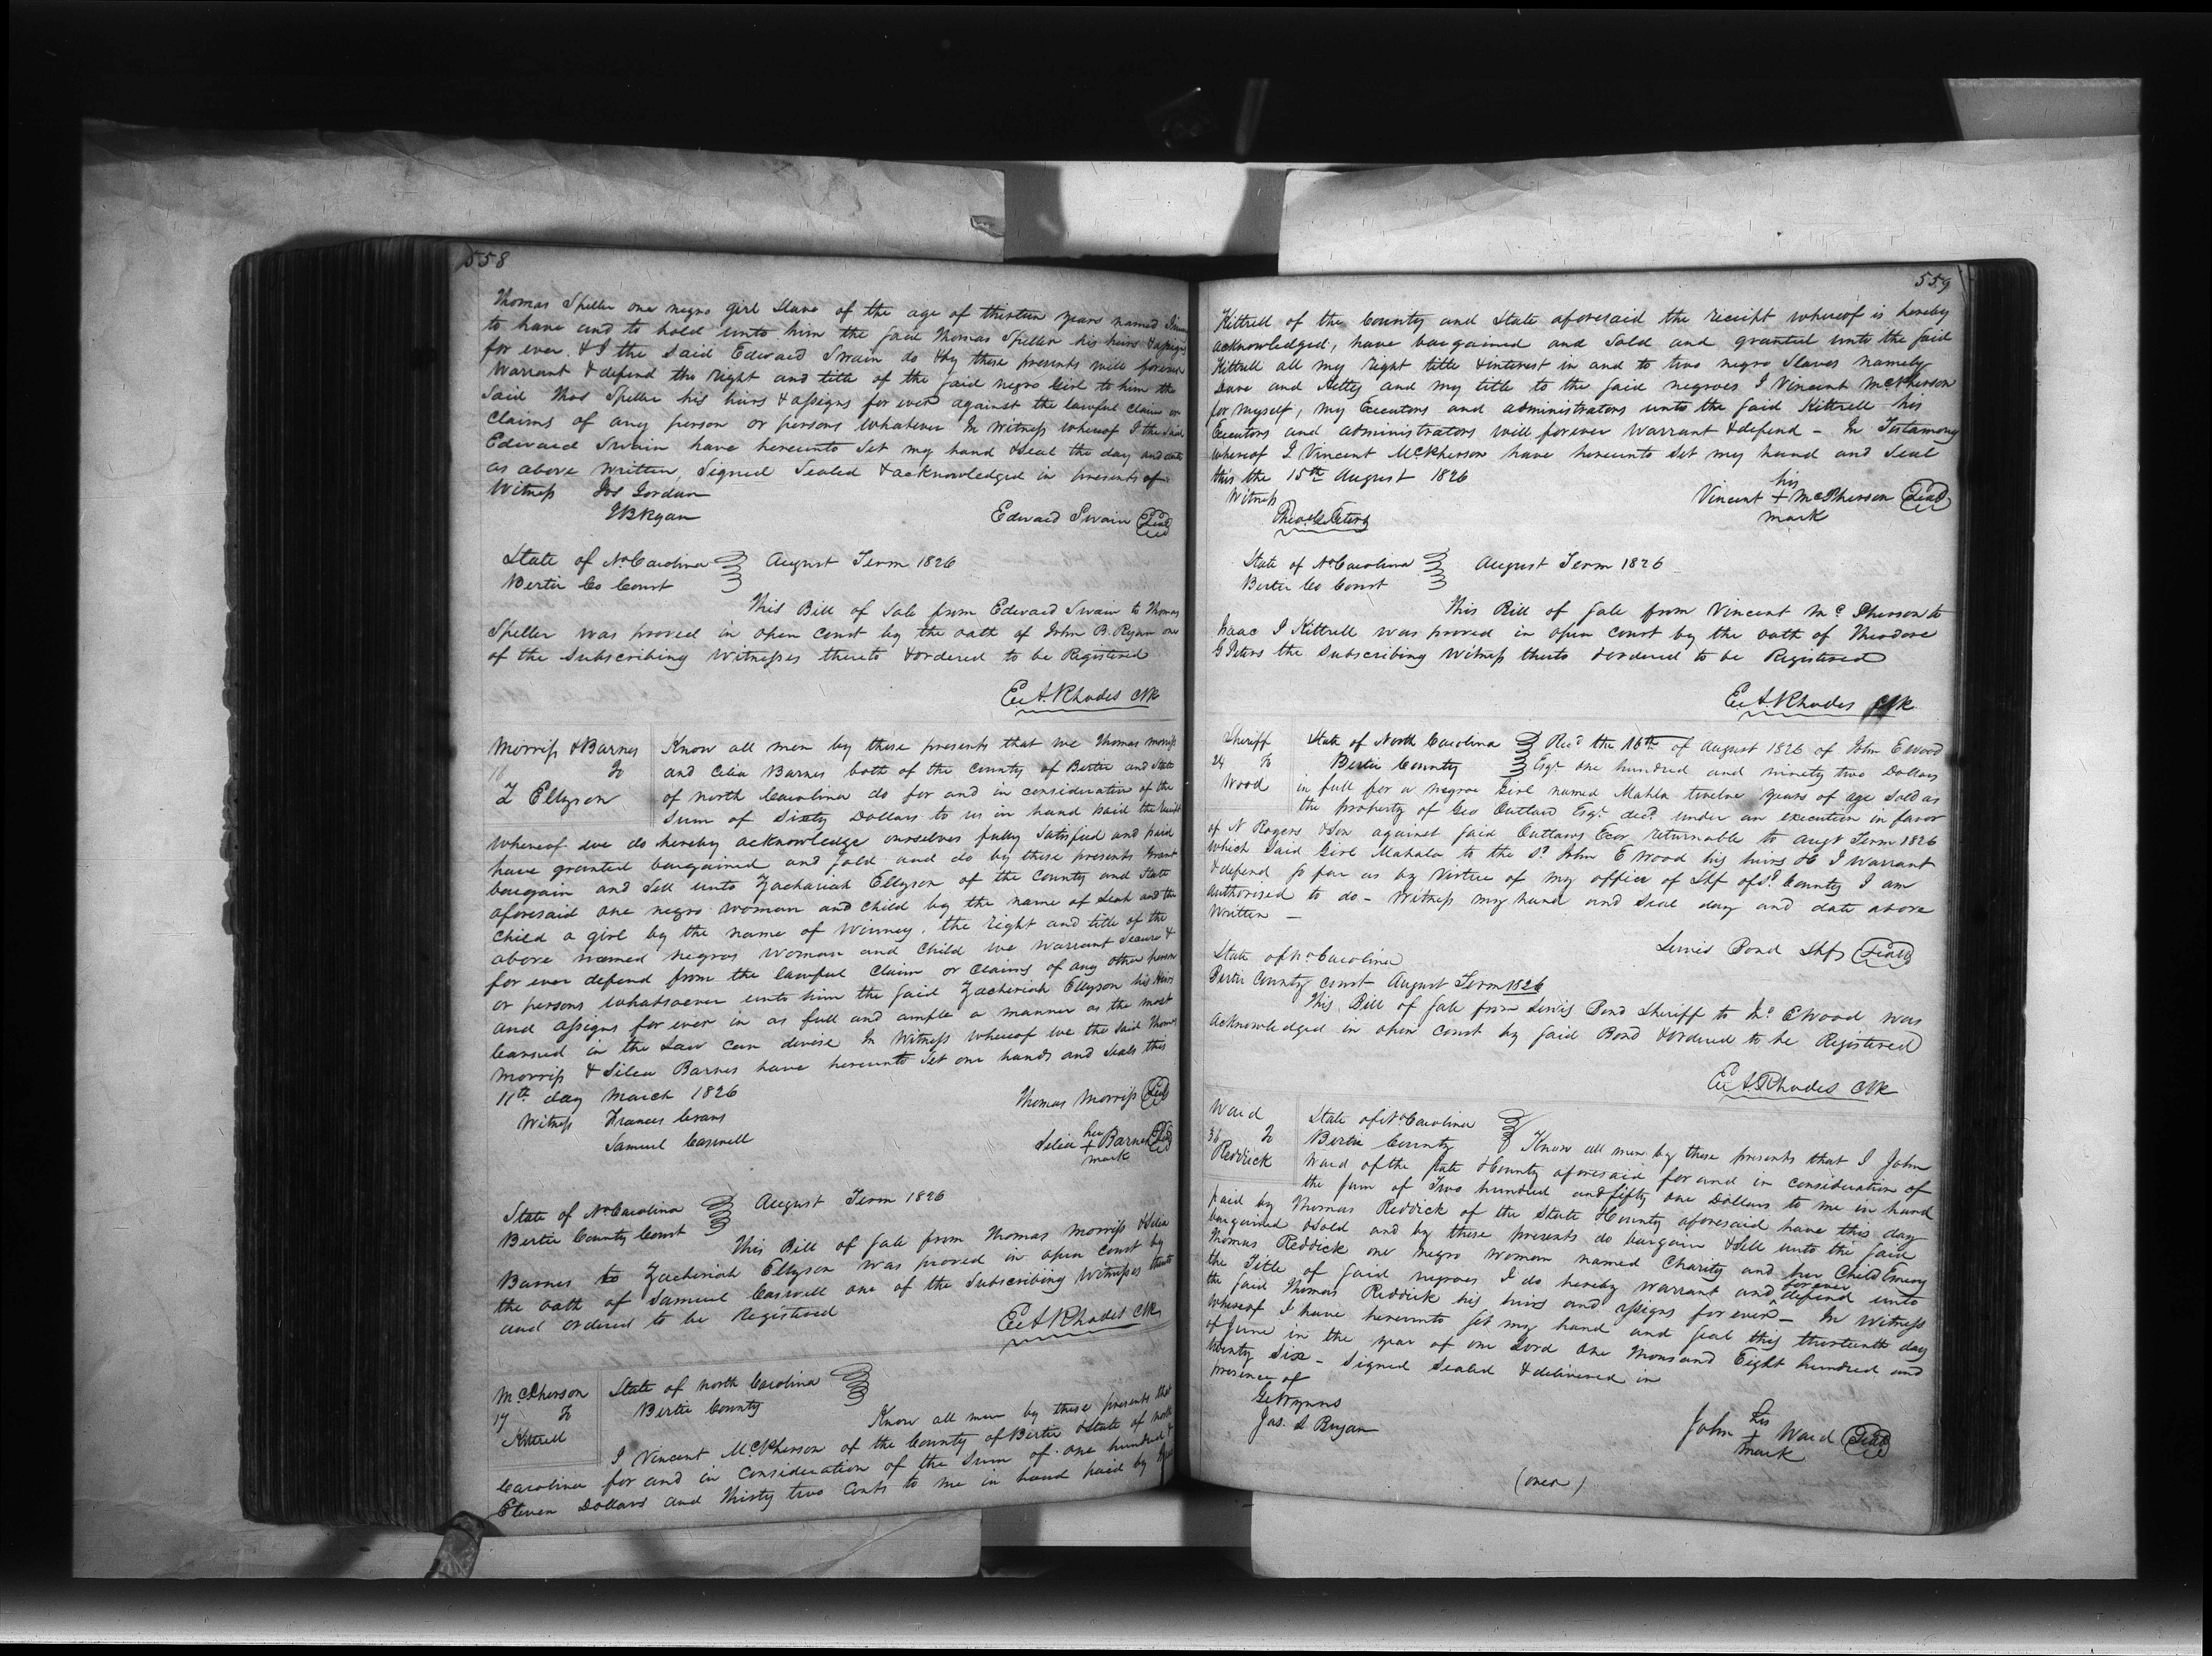 558
Thomas Speller one negro girl Slave of the age of thirteen years named
to have and to hold unto him the said Thomas Speller his heirs & assigns
for ever. & I the said Edward Swain do & by these presents will forever
Warrant & defend the right and title of the said negro Girl to him the
said Thos Speller his heirs & assigns for ever against the lawful claim or
claims of any person or persons whatever In Witness whereof I the said
Edward Swain have hereunto set my hand & seal the day and date
as above written, Signed Sealed & acknowledged in presents of
Witness Jos Jordan
JB Ryan Edward Swain Seal
State of No Carolina August Term 1826
Bertie Co Court
This Bill of Sale from Edward Swain to Thomas
Speller was proved in open court by the oath of John B. Ryan one
of the Subscribing Witnesses thereto & ordered to be Registered
E. A. Rhodes Clk
Morriss & Barnes
16 To
Z Ellyson
Know all men by these presents that we Thomas Morriss
and Celia Barnes both of the county of Bertie and State
of North Carolina do for and in consideration of the
sum of Sixty Dollars to us in hand paid the receipt
whereof we do hereby acknowledge ourselves fully satisfied and paid
have granted bargained and sold and do by these presents Grant
bargain and Sell unto Zachariah Ellyson of the County and State
aforesaid one negro woman and child by the name of Leah and the
child a girl by the name of Winney. the right and title of the
above named negros woman and child we warrant secure &
for ever defend from the lawful claim or claims of any other person
or persons whatsoever unto him the said Zacheriah Ellyson his Heirs
and assigns for ever in as full and ample a manner as the most
learned in the Law can devise In Witness whereof we the said Thomas
Morriss & Silea Barnes have hereunto set our hands and seals this
11th day March 1826 Thomas Morriss Seal
Witness Frances Evans
Samuel Caswell
her
Selia + Barnes Seal
mark
State of No Carolina August Term 1826
Bertie County Court
This Bill of Sale from Thomas Morriss & Selia
Barnes to Zacheriah Ellyson was proved in open court by
the oath of Samuel Caswell one of the Subscribing Witnesses thereto
and ordered to be Registered
E. A. Rhodes Clk
McPherson
17 To
Kittrell
State of North Carolina
Bertie County
Know all men by these presents that
I Vincent McPherson of the County of Bertie & State of North
Carolina for and in consideration of the Sum of one hundred &
Eleven Dollars and thirty two Cents to me in hand paid by
559
Kittrell of the County and State aforesaid the receipt whereof is hereby
acknowledged, have bargained and sold and granted unto the said
Kittrell all my right title & interest in and to two negro Slaves namely
Dave and Hetty and my title to the said negroes I Vincent McPherson
for myself, my Executors and administrators unto the said Kittrell his
Executors and administrators will forever warrant & defend - In Testamony
whereof I Vincent McPherson have hereunto set my hand and seal
this the 15th August 1826
Witness
his
Vincent + McPherson Seal
mark
State of No Carolina August Term 1826
Bertie Co Court
This Bill of Sale from Vincent Mc Pherson to
Isaac J Kittrell was proved in open court by the oath of Theodore
G Peters the Subscribing Witness thereto & ordered to be Registered
E. A. Rhodes Clk
Sheriff
24 To
Wood
State of North Carolina Recd the 16th of August 1826 of John E Wood
Bertie County Esqr one hundred and ninety two Dollars
in full for a negroe Girl named Mahla twelve years of age sold as
the property of Geo Outlaw Esqr decd under an execution in favor
of N Rogers & Son against said Outlaws Exor returnable to Augt Term 1826
which said Girl Mahala to the sd John E Wood his heirs &c I Warrant
& defend so far as by Virtue of my office of Shf of sd County I am
authorised to do - Witness my hand and seal day and date above
Written -
Lewis Bond Shf Seal
State of No Carolina
Bertie County Court August Term 1826
This Bill of Sale from Lewis Bond Sheriff to Jno E Wood was
acknowledged in open court by said Bond & ordered to be Registered
E. A. Rhodes Clk
Ward
36 To
Reddick
State of No Carolina
Bertie County Know all men by these presents that I John
Ward of the State & County aforesaid for and in consideration of
the sum of Two hundred and fifty one Dollars to me in hand
paid by Thomas Reddick of the State & County aforesaid have this day
bargained & sold and by these presents do bargain & Sell unto the said
Thomas Reddick one negro woman named Charity and her Child Emmy
the Title of said negroes I do hereby warrant and forever defend unto
the said Thomas Reddick his heirs and assigns for ever - In Witness
whereof I have hereunto set my hand and seal this thirteenth day
of June in the year of our Lord One Thousand Eight hundred and
twenty Six - Signed Sealed & delivered in
presence of
G Wynns
Jas. S Bryan
his
John + Ward Seal
mark
(over)